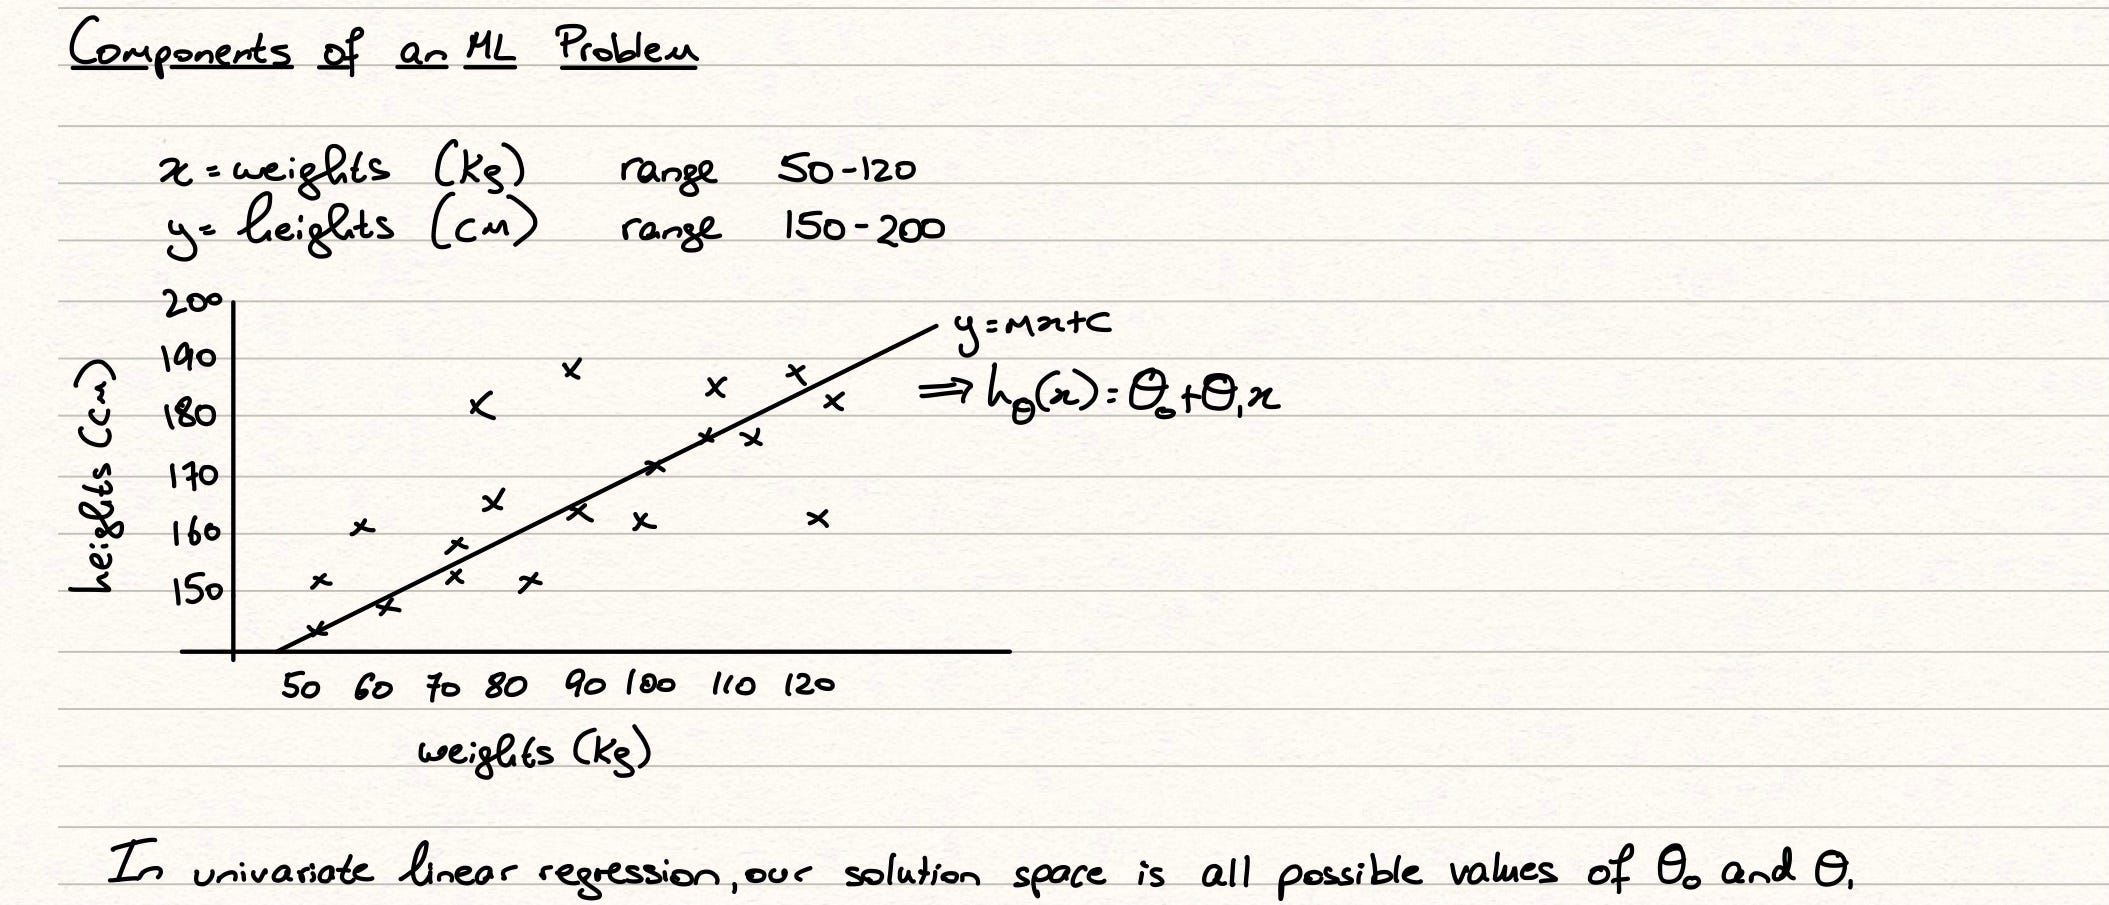 Components of an ML Problem
x = weights (kg) range 50-120
y = heights (cm) range 150-200
200
190
180
170
160
150
heights (cm)
y=mx+c
⇒ hθ(x) = θ₀+θ₁x
50 60 70 80 90 100 110 120
weights (kg)
In univariate linear regression, our solution space is all possible values of θ₀ and θ₁